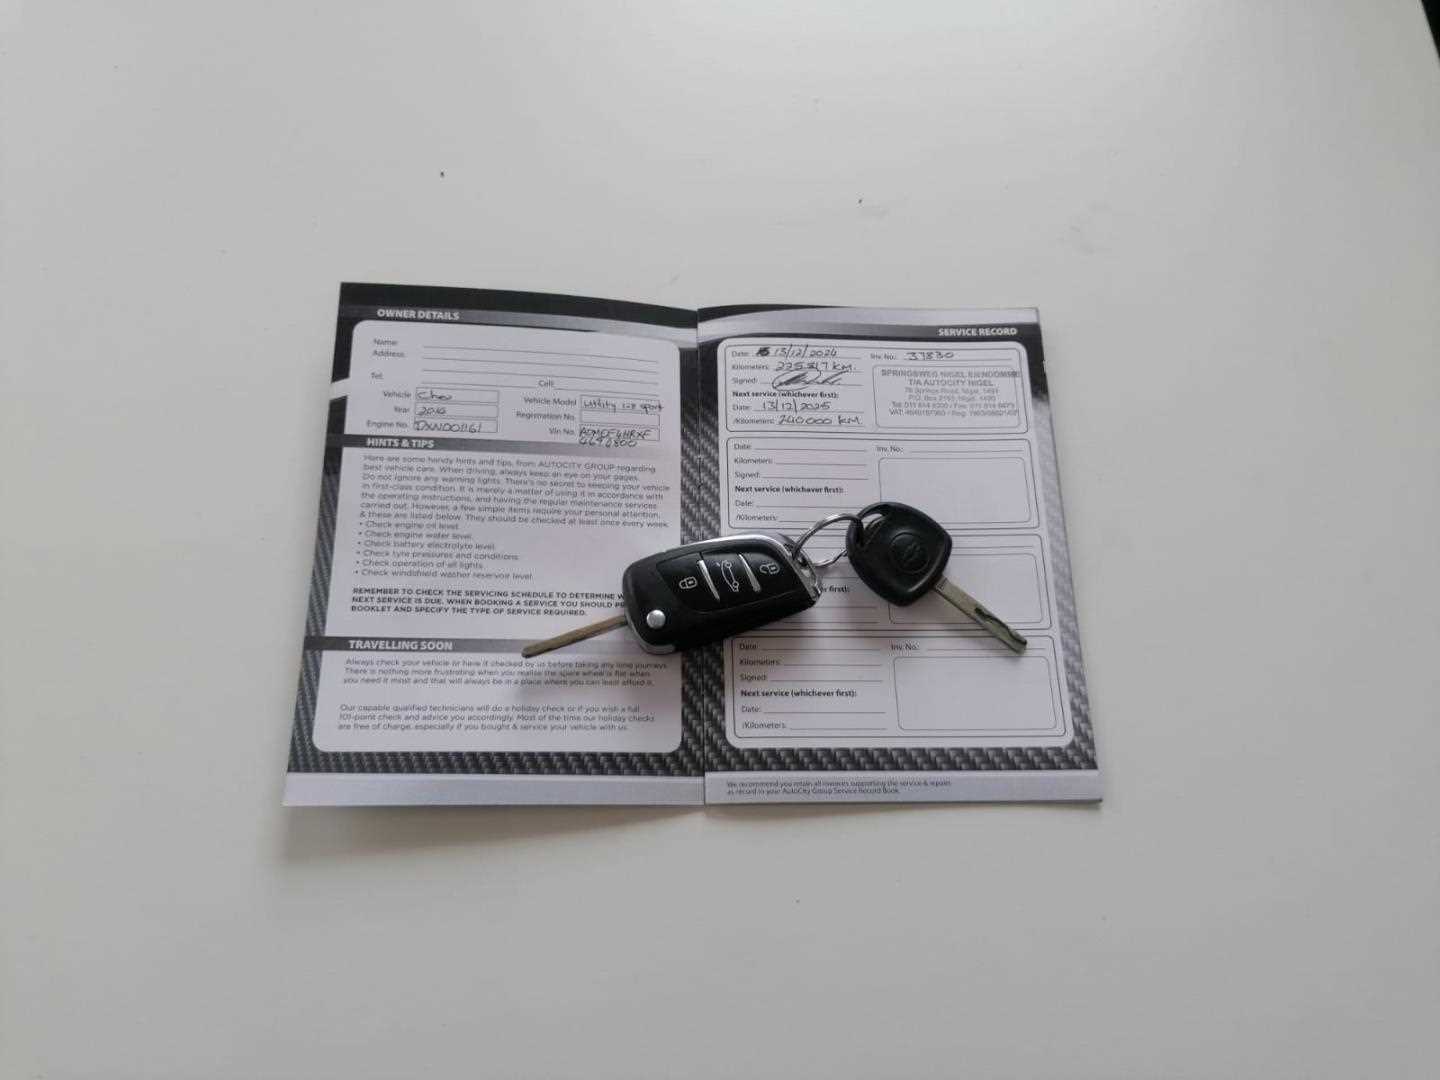 OWNER DETAILS
Name:
Address:
Tel:
Cell:
Vehicle Chev
Vehicle Model Utility 1.8 sport
Year
Registration No.
Engine No.
Vin No.
HINTS & TIPS
Here are some handy hints and tips, from AUTOCITY GROUP regarding
best vehicle care. When driving, always keep an eye on your gages.
Do not ignore any warning lights. There's no secret to keeping your vehicle
in first-class condition. It is merely a matter of using it in accordance with
the operating instructions, and having the regular maintenance services
carried out. However, a few simple items require your personal attention,
& these are listed below. They should be checked at least once every week.
• Check engine oil level.
• Check engine water level.
• Check battery electrolyte level.
• Check tyre pressures and conditions.
• Check operation of all lights.
• Check windshield washer reservoir level.
REMEMBER TO CHECK THE SERVICING SCHEDULE TO DETERMINE
NEXT SERVICE IS DUE. WHEN BOOKING A SERVICE YOU SHOULD
BOOKLET AND SPECIFY THE TYPE OF SERVICE REQUIRED.
TRAVELLING SOON
Always check your vehicle or have it checked by us before taking any long journeys.
There is nothing more frustrating when you realise the spare wheel is flat when
you need it most and that will always be in a place where you can least afford it.
Our capable qualified technicians will do a holiday check or if you wish a full
101-point check and advice you accordingly. Most of the time our holiday checks
are free of charge, especially if you bought & service your vehicle with us.
SERVICE RECORD
Date: 13/12/2024
Inv. No.: 37830
Kilometers: 225 817 KM.
Signed:
Next service (whichever first):
Date: 13/12/2025
/Kilometers: 240000 KM.
SPRINGSWEG NIGEL EIENDOMME
T/A AUTOCITY NIGEL
78 Springs Road, Nigel, 1491
P.O. Box 2193, Nigel, 1490
Date:
Inv. No.:
Kilometers:
Signed:
Next service (whichever first):
Date:
/Kilometers:
first):
Date:
Inv. No.:
Kilometers:
Signed:
Next service (whichever first):
Date:
/Kilometers:
We recommend you retain all invoices supporting the service & repairs
as record in your AutoCity Group Service Record Book.